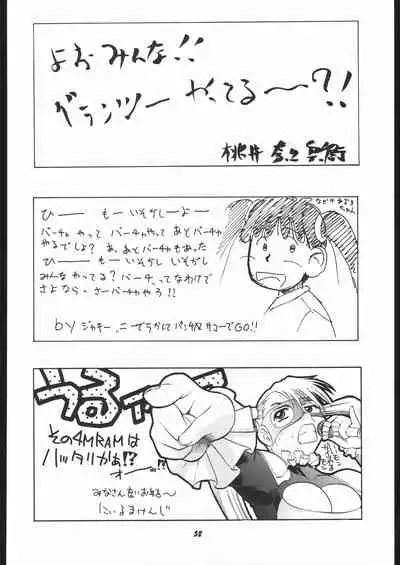 よお みんな!!
グランツー やってる〜?!!
桃井
ひーー もー いそがしーよー
バーチャ やって バーチャやって あと バーチャ
やるでしょ? あ、あと バーチャもあった
ひーー もー いそがし いそがし
みんな やってる? バーチャ、ってなわけで
さよなら〜 さーバーチャやろ!!
by ジャッキー
GO!!
ちゃん
うるァァ
その4MRAMは
ハッタリかぁ!?
オー
みなさん
にいるまけんじ
58